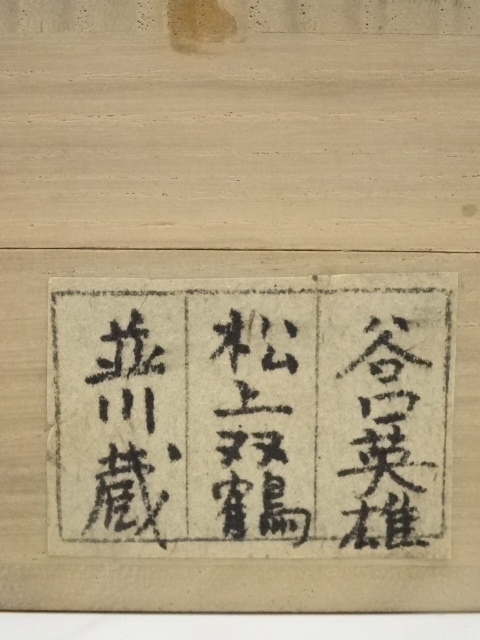 谷口英雄
松上双鶴
並川蔵